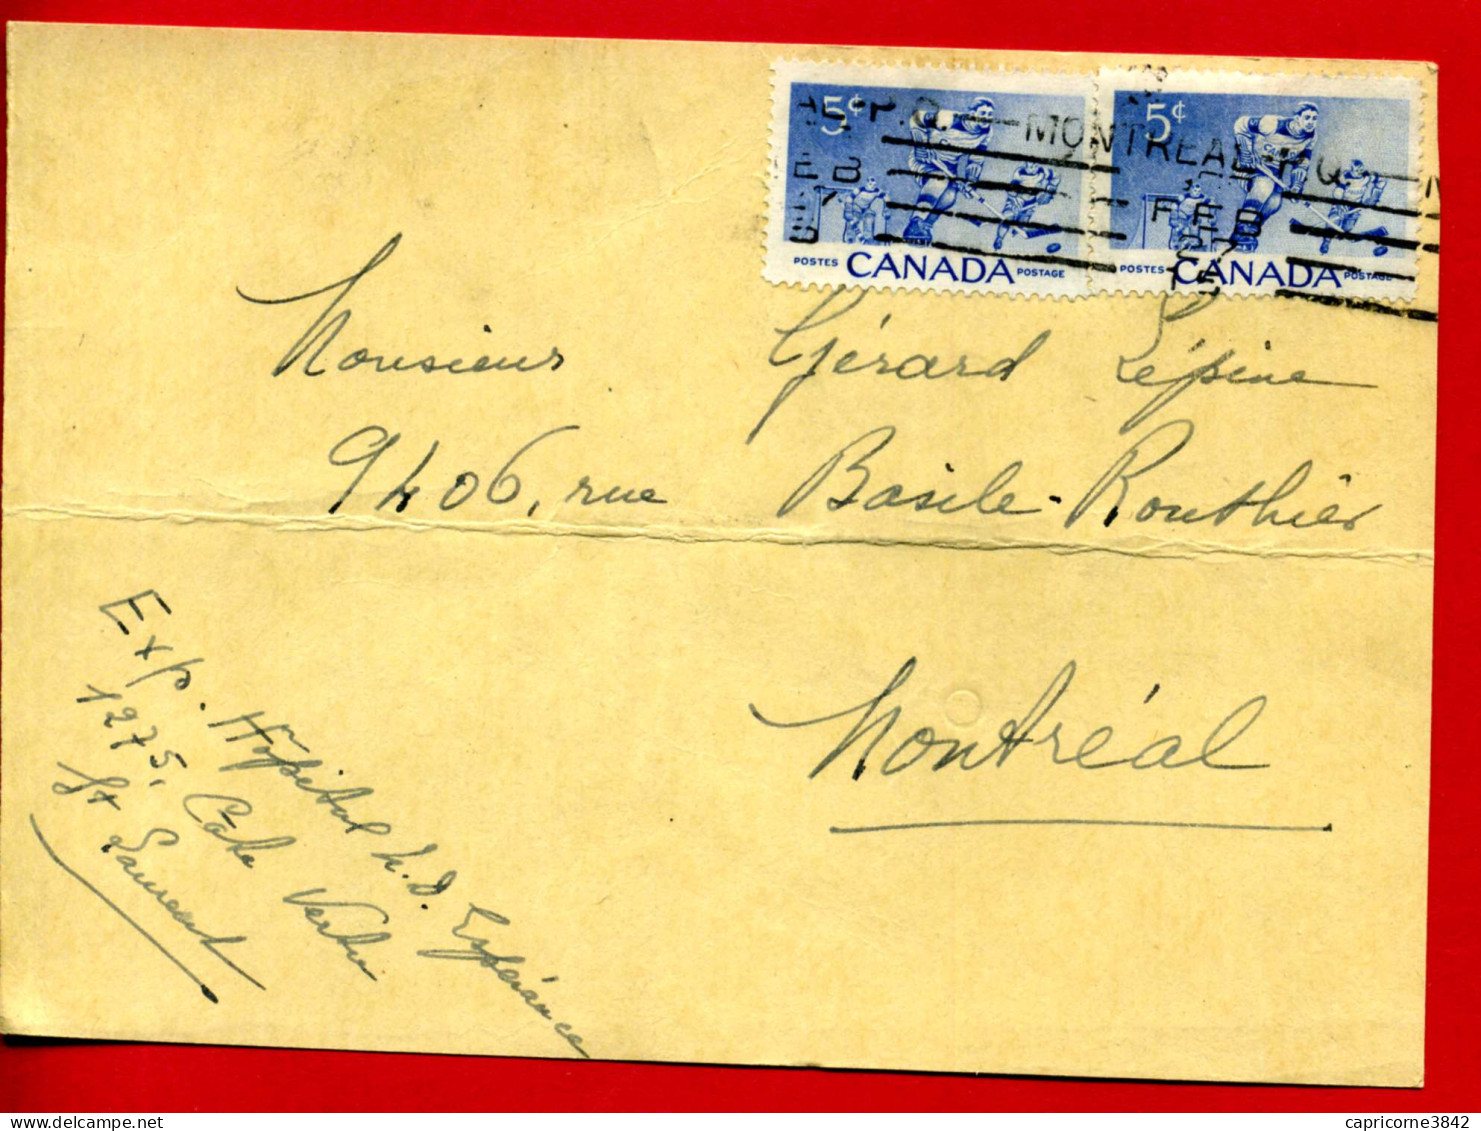 5¢ 5¢
P.Q. — MONTREAL - P.Q. —
EB FEB
27
POSTES CANADA POSTAGE POSTES CANADA POSTAGE
Monsieur Gérard Lépine
9406, rue Basile-Routhier
Montréal
Exp. Hôpital N.D. Espérance
1275, Côte Vertu
St Laurent
delcampe.net
capricorne3842